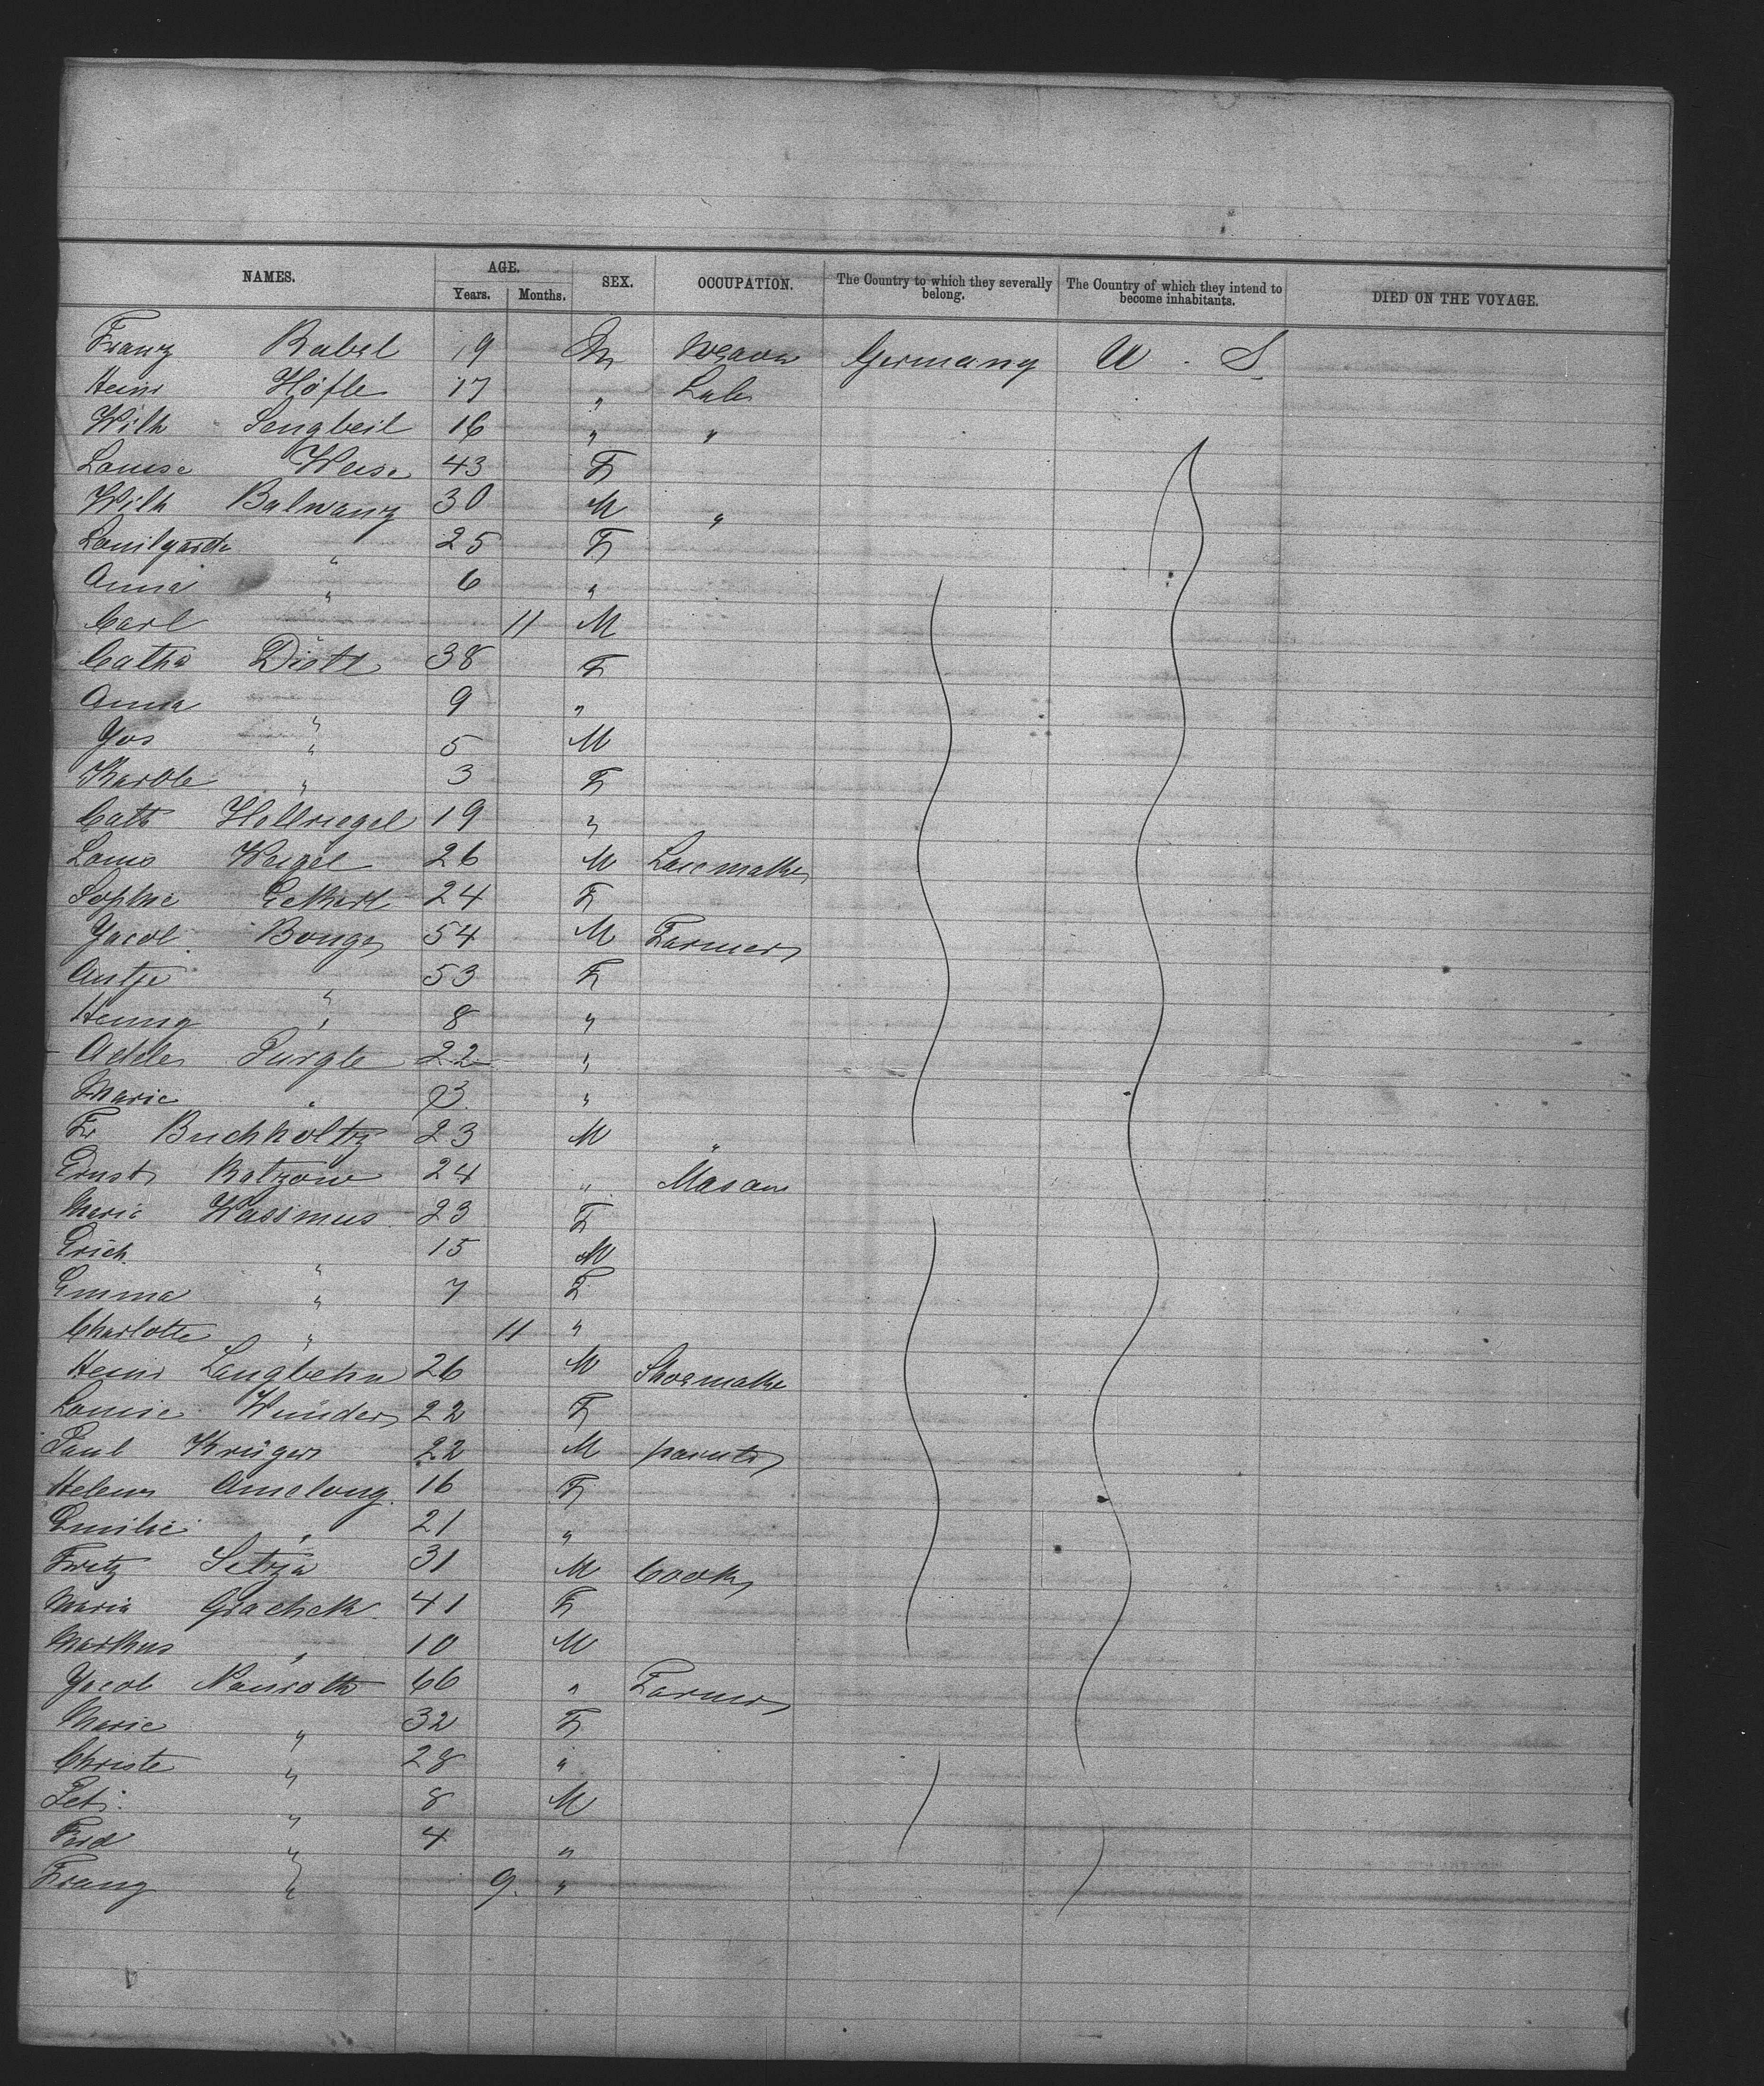 NAMES. AGE. SEX. OCCUPATION. The Country to which they severally belong. The Country of which they intend to become inhabitants. DIED ON THE VOYAGE.
Years. Months.
Franz Rabel 19 M Weaver Germany U. S.
Heinr Höfle 17 " Labr
Wilh Sengbeil 16 " "
Louise Weise 43 F
Wilh Balwanz 30 M "
25 F
Anna " 6 "
Carl 11 M
Catha Diotl 38 F
Anna " 9 "
Jos " 5 M
" 3 F
Cath Hellriegel 19 "
Louis Weigel 26 M
Sophie Eckhert 24 F
Jacob 54 M Farmer
Antje " 53 F
" 8 "
Purgle 22 "
Marie " "
Fr Buchholtz 23 M "
Ernst Ratzow 24 " Mason
Marie Wassmus 23 F
Erich " 15 M
Emma " 7 F
Charlotte " 11 "
Heinr Langbehn 26 M Shoemaker
Louise Wunder 22 F
Paul Krüger 22 M painter
Helene Amelong 16 F
Emilie " 21 "
Fritz 31 M Cook
Maria 41 F
Markus " 10 M
Jacob Nauroth 66 " Farmer
Marie " 32 F
Christe " 28 "
Pet. " 8 M
Ferd " 4 "
Franz " 9 "